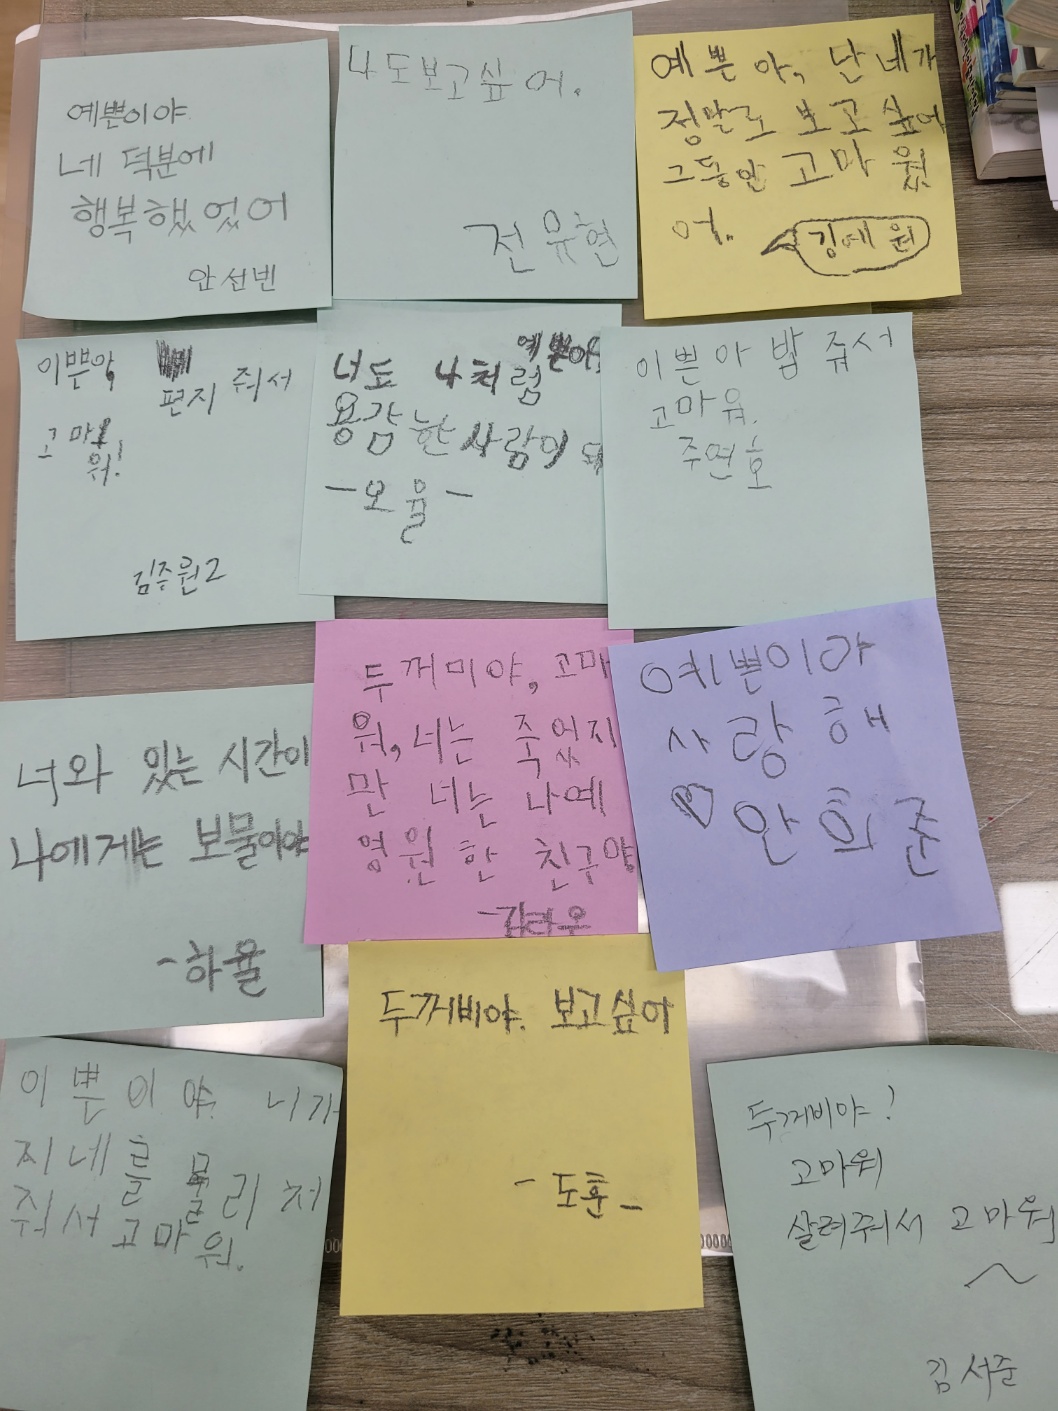 예쁜이야
네 덕분에
행복했었어
안선빈
나도보고싶어.
전유현
예쁜아, 난 네가
정말로 보고싶어
그동안 고마웠
어.
김예원
이쁜아,
편지 줘서
고마
워!
김주원2
예쁜아,
너도 나처럼
용감한 사람이 돼
-오율-
이쁜아 밥 줘서
고마워.
주연호
너와 있는 시간이
나에게는 보물이야
-하율
두꺼미야, 고마
워, 너는 죽었지
만 너는 나예
영원한 친구야
예쁜이야
사랑해
♡안희준
이쁜이야. 니가
지네를 물리쳐
줘서 고마워.
두꺼비야. 보고싶아
-도훈-
두꺼비야!
고마워
살려줘서 고마워
김서준